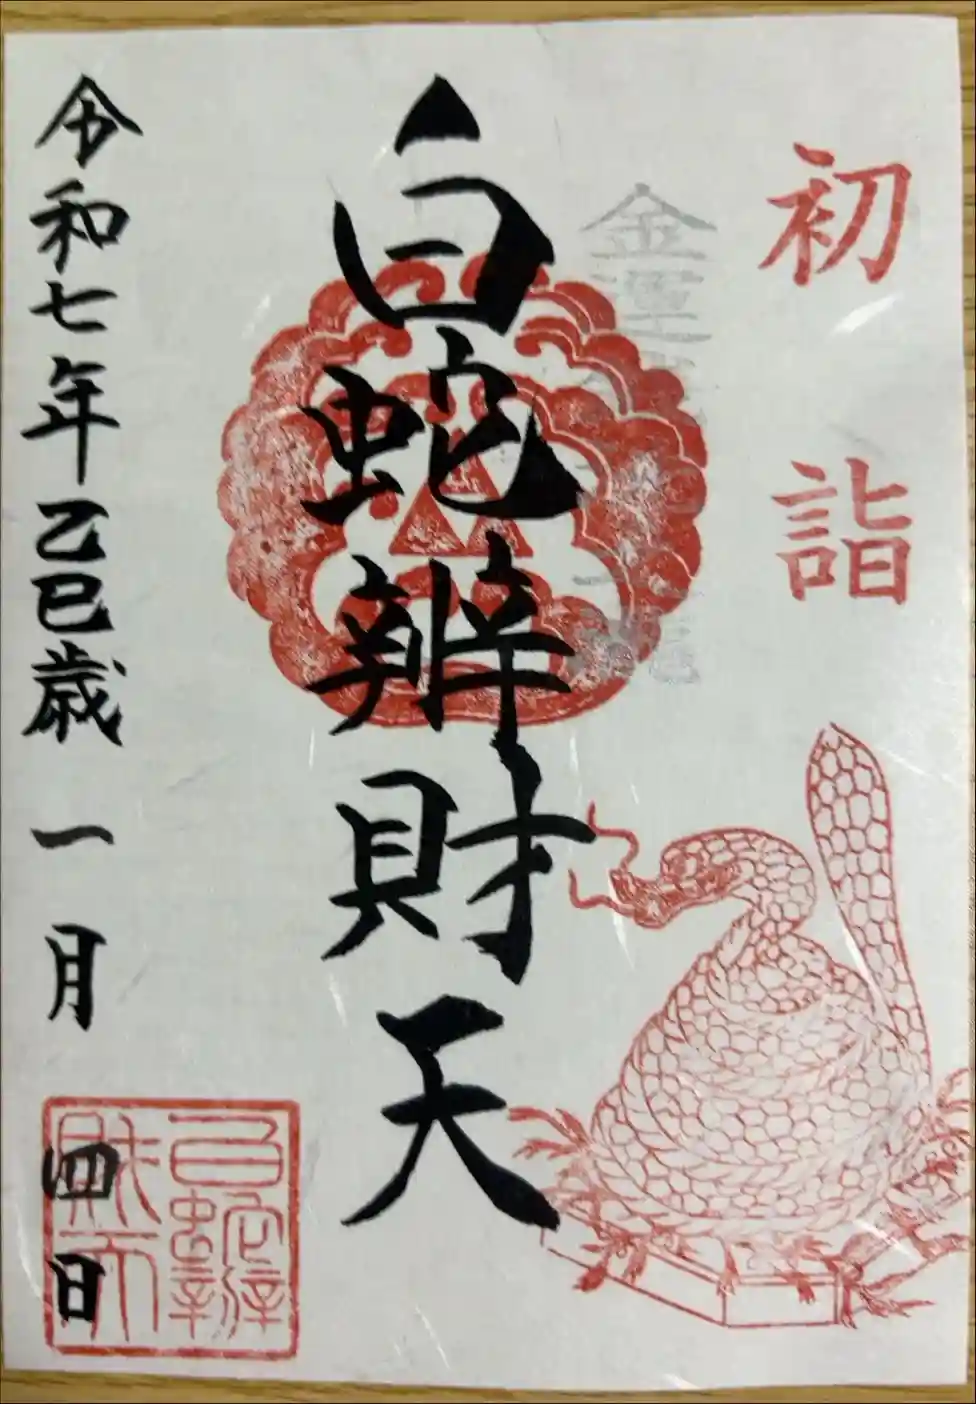 初詣
白蛇辨財天
令和七年乙巳歳一月四日
白蛇辨財天